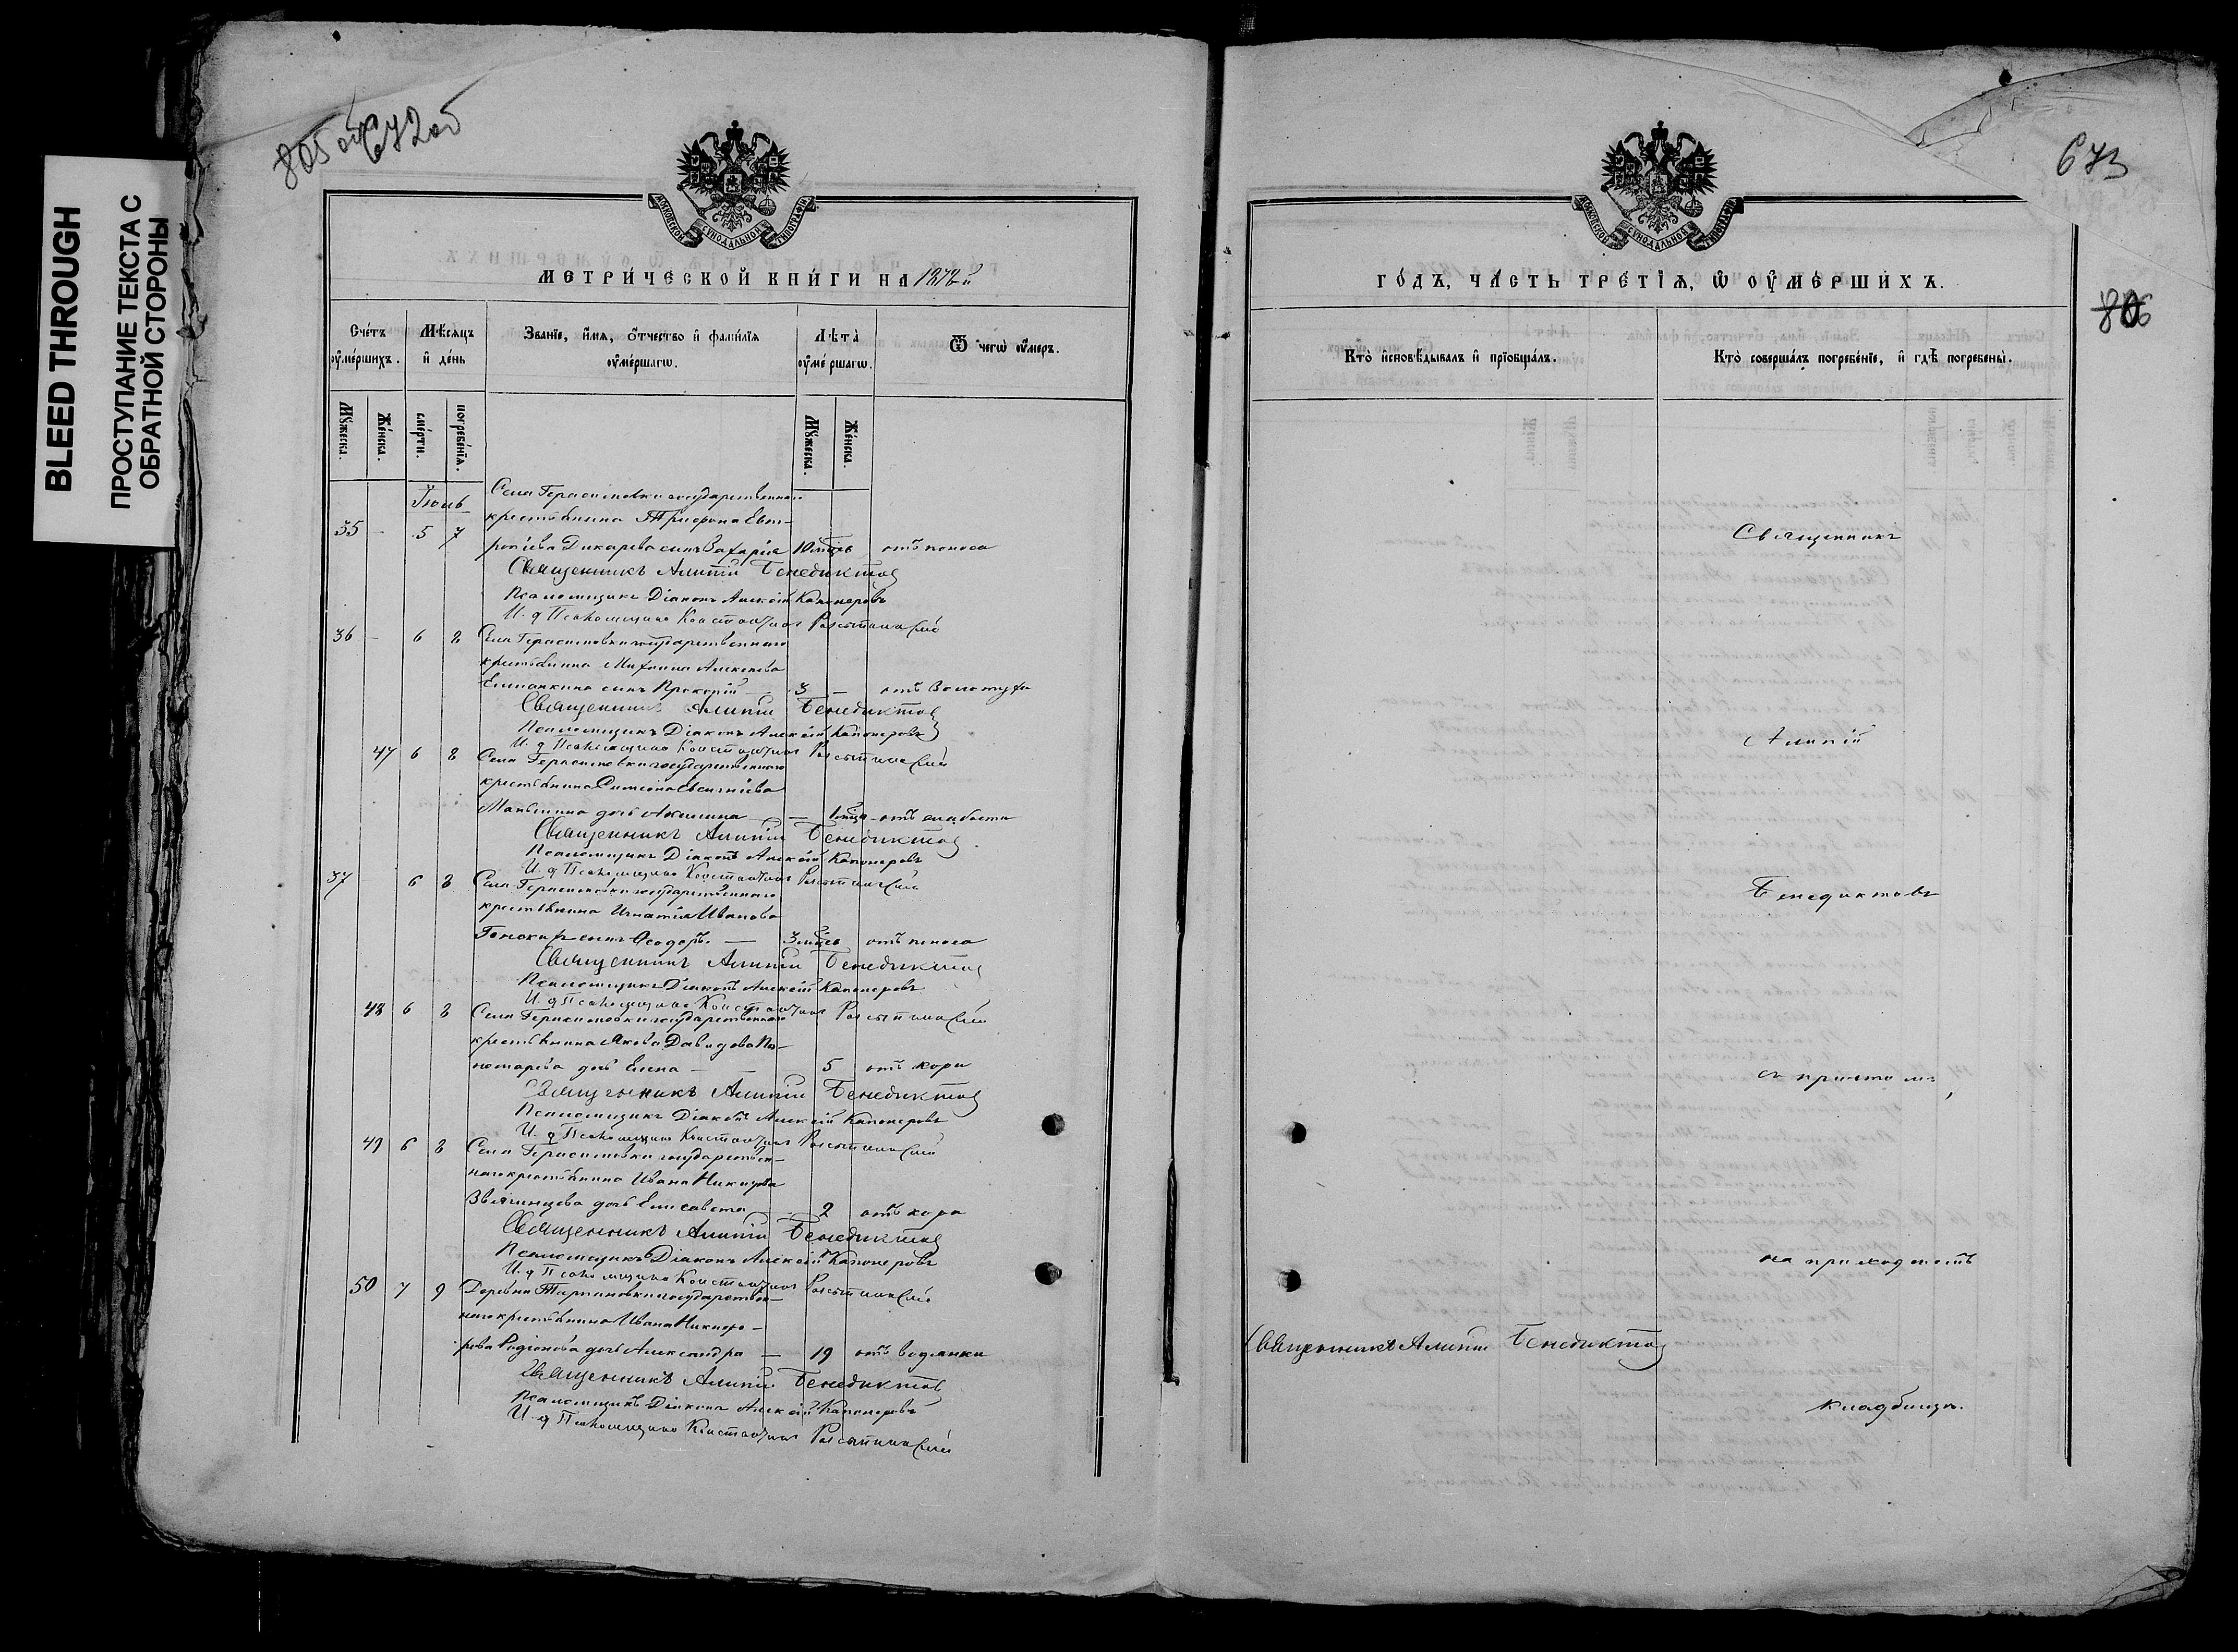 BLEED THROUGH
ПРОСТУПАНИЕ ТЕКСТА С
ОБРАТНОЙ СТОРОНЫ
805 об 672 об
МОСКОВСКОЙ СУНОДАЛЬНОЙ ТИПОГРАФІИ
МЕТРИ́ЧЕСКОЙ КНИ́ГИ НА 1878й
Сче́тъ ᲂу҆ме́ршихъ.
Мѣ́сяцъ и҆ де́нь
Зва́ніе, и҆́мя, ѻ҆́тчество и҆ фами́лїя ᲂу҆ме́ршагѡ.
Лѣта̀ ᲂу҆ме́ршагѡ.
Ѿ чегѡ̀ ᲂу҆́меръ.
Мꙋ́жеска.
Же́нска.
сме́рти.
погребе́нїя.
Мꙋ́жеска.
Же́нска.
Іюль
Села Герасимовки государственнаго
35 - 5 7 крестьянина Трифона Евт-
ропіева Дикарева сынъ Захарія 10 мцѣв отъ поноса
Священникъ Алипій Бенедиктов
Псаломщикъ Діаконъ Алексій Капонеровъ
И. д Псаломщика Константин
36 - 6 8 Села Герасимовки государственнаго
крестьянина Михаила Алексѣева
Емшанкина сынъ Прокопій — 3 — отъ золотухи
Священникъ Алипій Бенедиктов
Псаломщикъ Діаконъ Алексій Капонеровъ
И. д Псаломщика Константин
47 6 8 Села Герасимовки государственнаго
крестьянина Симеона Евсигніева
дочь Акилина — — 1 мца отъ слабости
Священникъ Алипій Бенедиктов
Псаломщикъ Діаконъ Алексій Капонеровъ
И. д Псаломщика Константин
37 6 8 Села Герасимовки государственнаго
крестьянина Игнатія Иванова
сынъ Ѳеодоръ. — 3 мцѣв отъ поноса
Священникъ Алипій Бенедиктов
Псаломщикъ Діаконъ Алексій Капонеровъ
И. д Псаломщика Константин
48 6 8 Села Герасимовки государственнаго
крестьянина Якова Давидова По-
номарева дочь Елена — 5 отъ кори
Священникъ Алипій Бенедиктов
Псаломщикъ Діаконъ Алексій Капонеровъ
И. д Псаломщика Константин
49 6 8 Села Герасимовки государствен-
наго крестьянина Ивана Никитова
Звягинцева дочь Елисавета — 2 отъ кори
Священникъ Алипій Бенедиктов
Псаломщикъ Діаконъ Алексій Капонеровъ
И. д Псаломщика Константин
50 7 9 Деревни государствен-
наго крестьянина Ивана Никифо-
рова Родіонова дочь Александра — 19 отъ водянки
Священникъ Алипій Бенедиктов
Псаломщикъ Діаконъ Алексій Капонеровъ
И. д Псаломщика Константин
673
806
МОСКОВСКОЙ СУНОДАЛЬНОЙ ТИПОГРАФІИ
ГО́ДЪ, ЧА́СТЬ ТРЕ́ТЇѦ, Ѡ҆ ОУ҆МЕ́РШИХЪ.
Кто̀ и҆сповѣ́дывалъ и҆ прїобща́лъ.
Кто̀ соверша́лъ погребе́нїе, и҆ гдѣ̀ погребены̀.
Священникъ
Алипій
Бенедиктовъ
съ причтомъ,
на приходскомъ
Священникъ Алипій Бенедиктов
кладбищѣ.